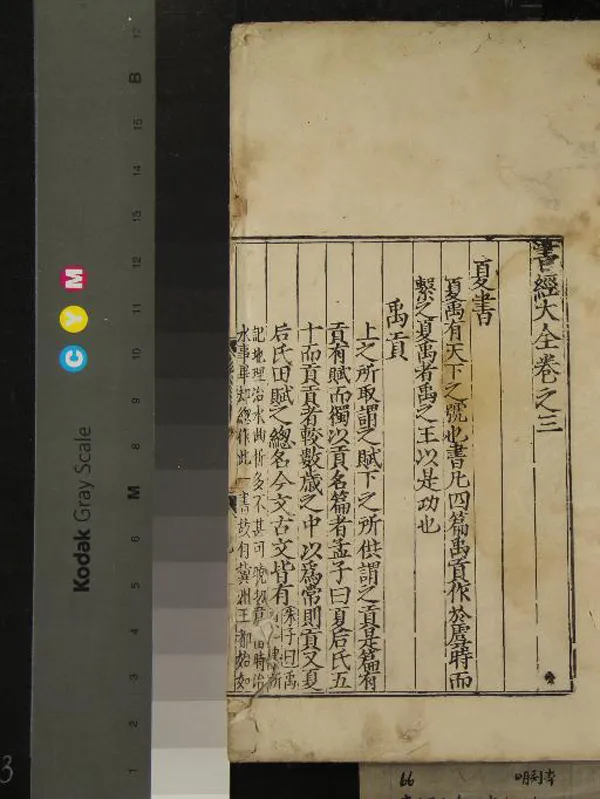 書經大全卷之三
夏書
夏禹有天下之號也書凡四篇禹貢作於虞時而
繫之夏禹者禹之王以是功也
禹貢
上之所取謂之賦下之所供謂之貢是篇有
貢有賦而獨以貢名篇者孟子曰夏后氏五
十而貢貢者較數歲之中以為常則貢又夏
后氏田賦之總名今文古文皆有朱子曰禹
記地理治水曲折多不甚可曉
時治
水事畢却總作此一書故有冀州王都始如
Kodak Gray Scale
C Y M
B
M
17
15
14
13
11
10
9
8
6
5
4
3
2
1
3
66
明刻本